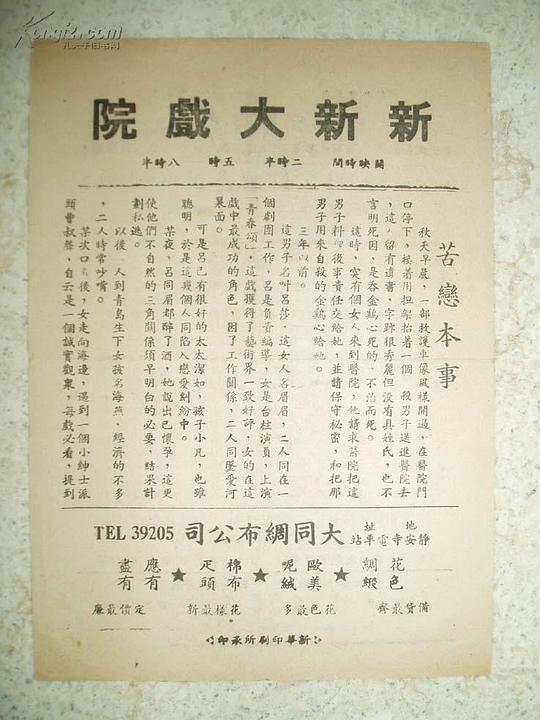 Kongfz.com
孔夫子旧书网
新新大戲院
開映時間 二時半 五時 八時半
苦戀本事
秋天早晨，一部救護車像風樣開過，在醫院門
口停下，接着用担架抬着一個 殺男子送進醫院去
，這人留有遺書，字跡很秀麗但没有具姓氏，也不
言明死因，是吞金鷄心死的，不治而死。
這時，突有個女人來到醫院，她請求醫院把這
男子料理後事責任交給她，並請保守秘密，和把那
男子用來自殺的金鷄心給她。
三年以前。
這男子名叫呂莎，這女人名眉眉，二人同在一
個劇團工作，呂是負責編導，女是台柱演員，上演
「青春頌」，這戲獲得了藝術界一致好評，女的在這
戲中最成功的角色，因了工作關係，二人同墜愛河
果面。
可是呂已有很好的太太潔如，孩子小凡，也雖
聰明，於是這幾個人同陷入戀愛糾紛中。
某夜，呂同眉都醉了酒，她說出已懷孕，這更
使他們不自然的三角關係須早明白的必要，結果計
劃私逃。
以後 人到青島生下女孩名海燕，經濟的不多
，二人時常吵嘴。
某次口 後，女走向海邊，遇到一個小紳士派
頭曹叔磬，自云是一個誠實觀衆，每戲必看，提到
地址 靜安寺電車站
大同綢布公司 TEL 39205
花色綢緞★歐美呢絨★棉布疋頭★應有盡有
備貨最齊 花色最多 花樣最新 定價最廉
新華印刷所承印